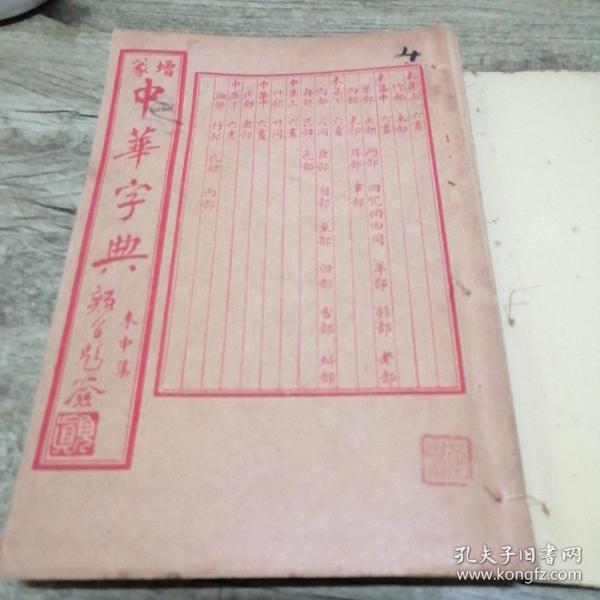 增篆
中華字典
未申集
題簽
4
未集上 六畫
竹部 米部
未集中 六畫
糸部 缶部 网部 四䍏冈罒同 羊部 羽部 老部
而部 耒部 耳部 聿部
未集下 六畫
肉部 月同 臣部 自部 至部 臼部 舌部 舛部
舟部 艮部 色部
申集上 六畫
艸部 艹同
申集中 六畫
虍部 虫部
申集下 六畫
血部 行部 衣部 襾部
孔夫子旧书网
www.kongfz.com